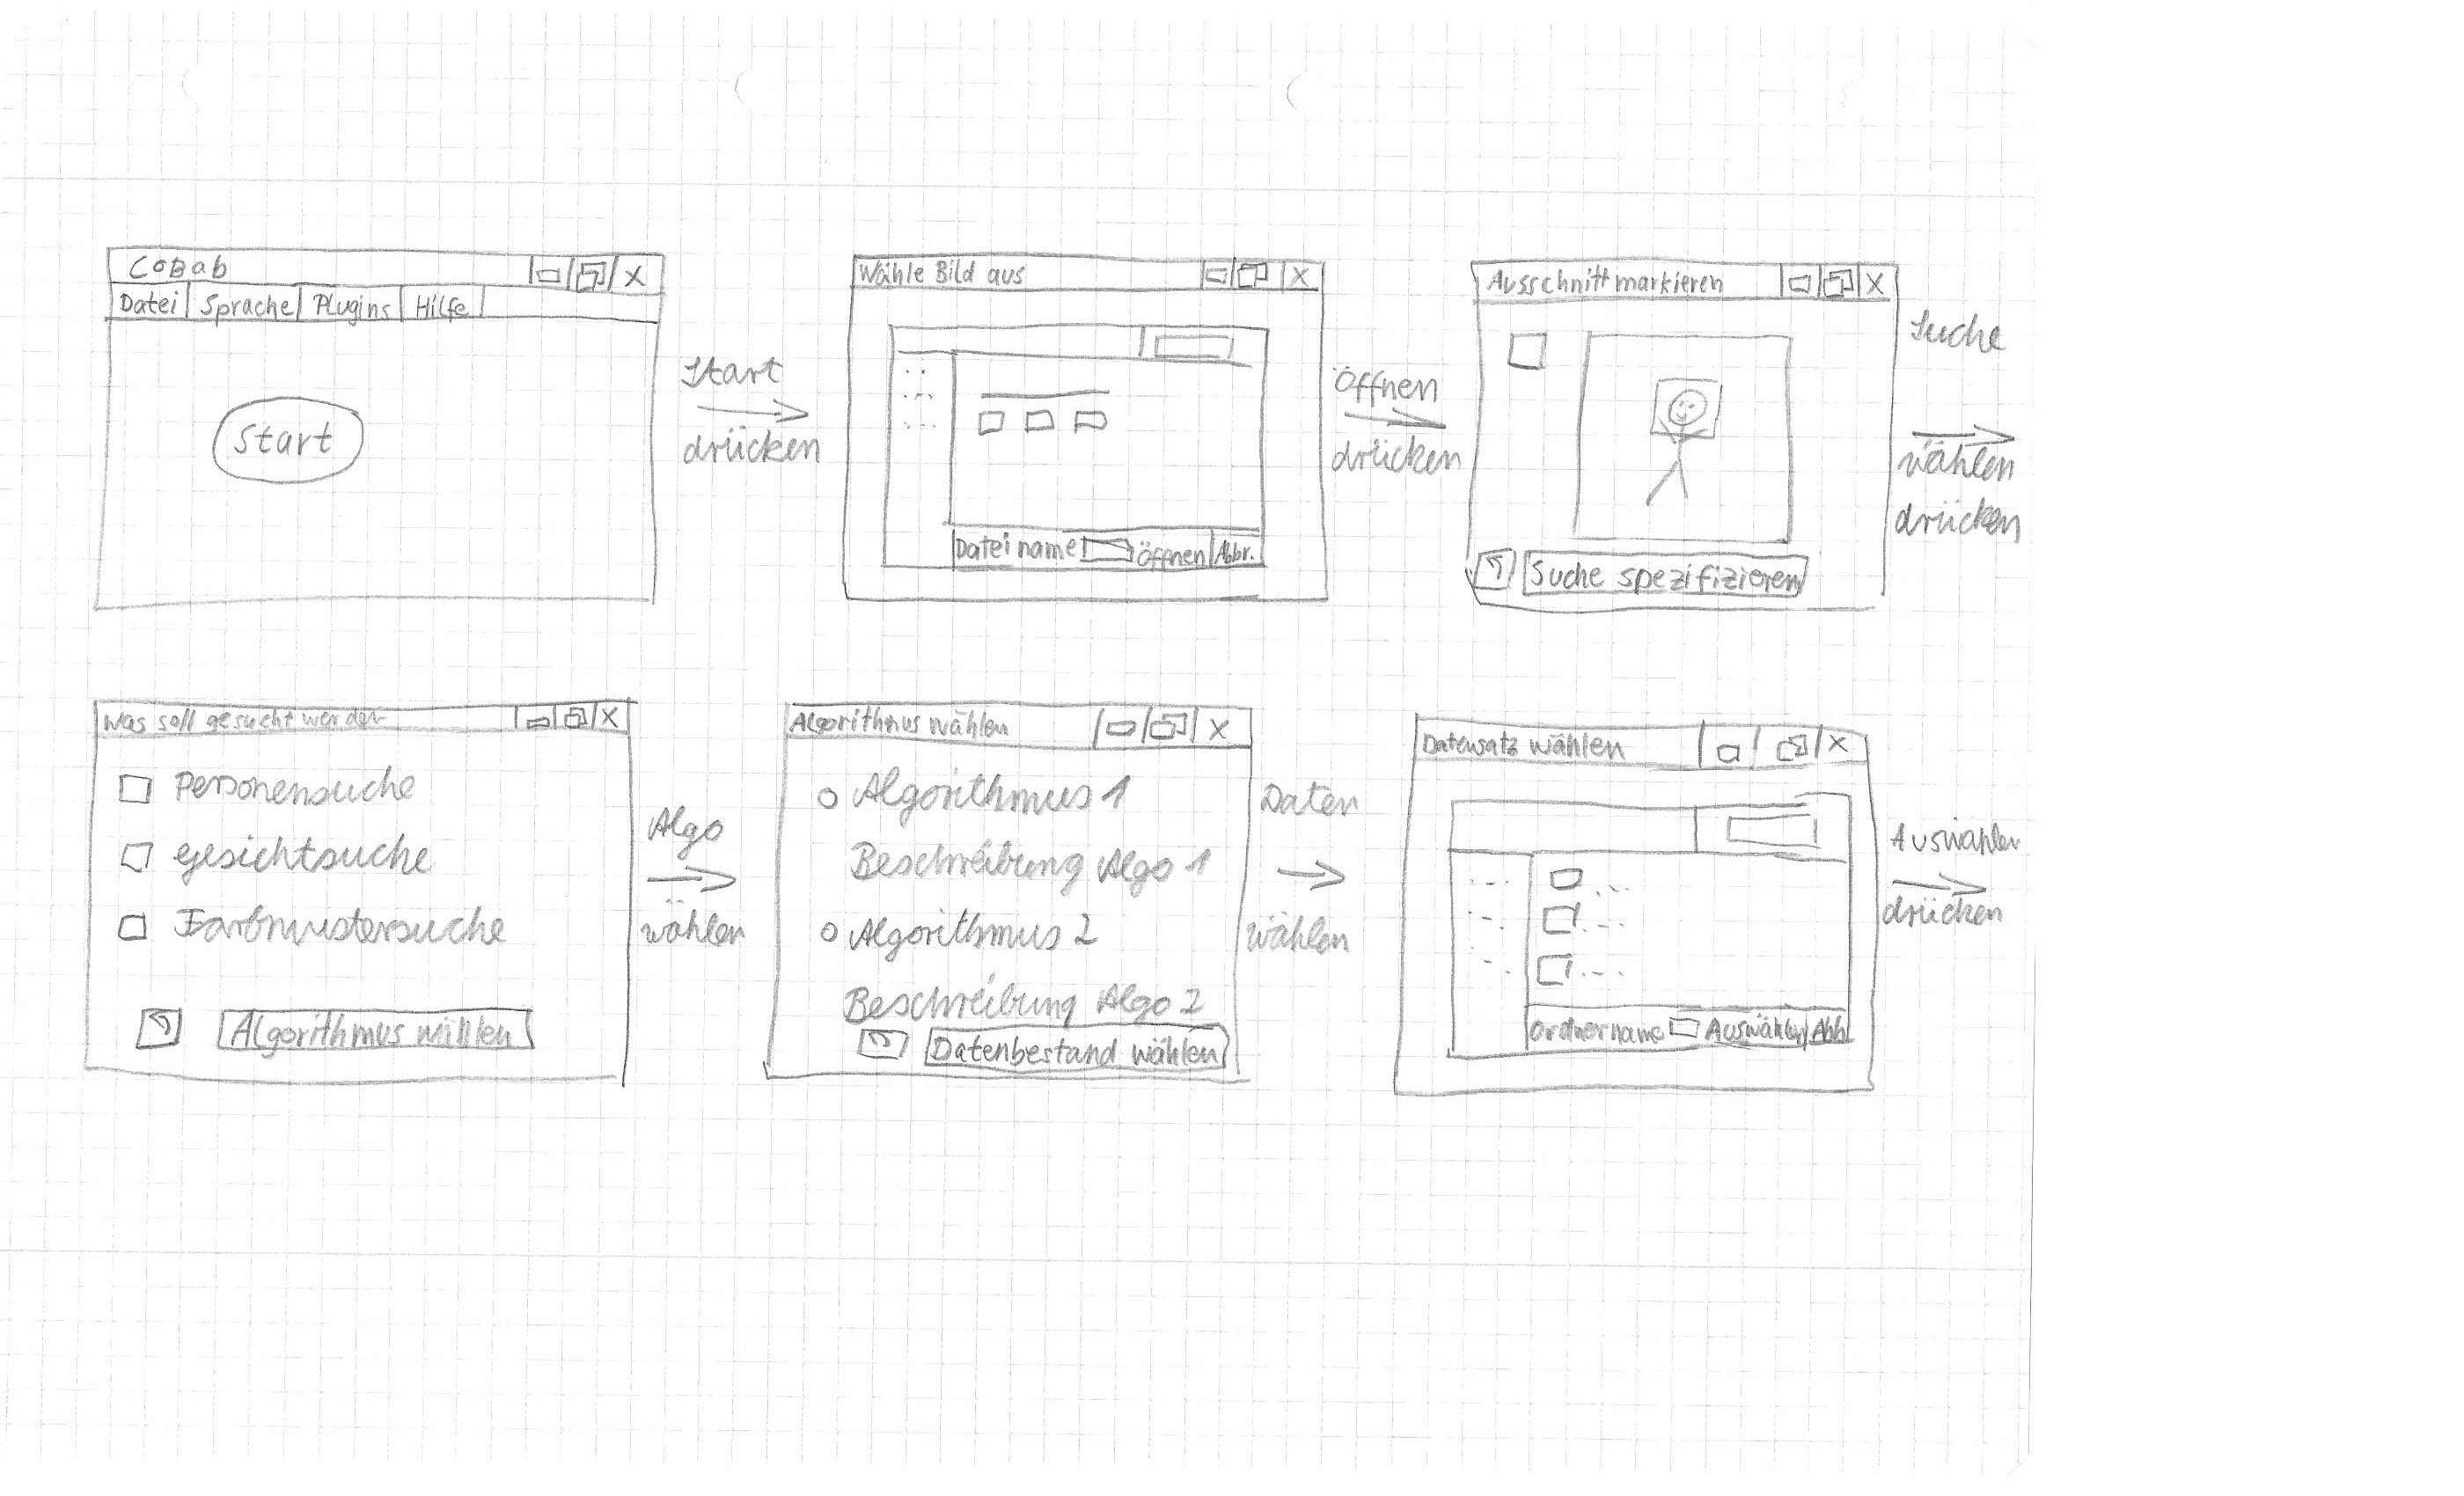 CoBab
Datei Sprache Plugins Hilfe
Start
Start
drücken
Wähle Bild aus
Dateiname Öffnen Abbr.
Öffnen
drücken
Ausschnitt markieren
Suche spezifizieren
Suche
wählen
drücken
Was soll gesucht werden
Personensuche
gesichtsuche
Farbmustersuche
Algorithmus wählen
Algo
wählen
Algorithmus wählen
Algorithmus 1
Beschreibung Algo 1
Algorithmus 2
Beschreibung Algo 2
Datenbestand wählen
Daten
wählen
Datensatz wählen
Ordnername Auswählen Abb
Auswählen
drücken